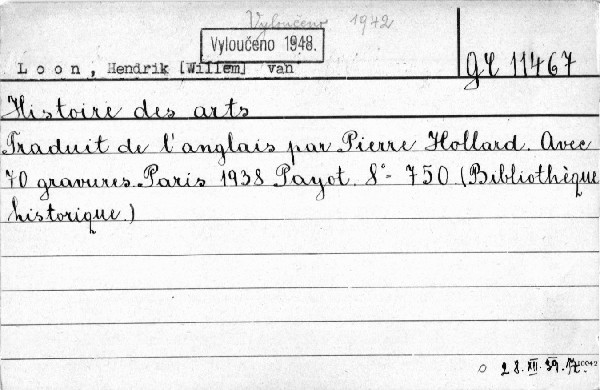 Vyloučeno 1942
Vyloučeno 1948.
Loon, Hendrik [Willem] van
GL 11467
Histoire des arts
Traduit de l'anglais par Pierre Hollard. Avec
70 gravures. Paris 1938 Payot. 8°- 750 (Bibliothèque
historique.)
28.XII.39.